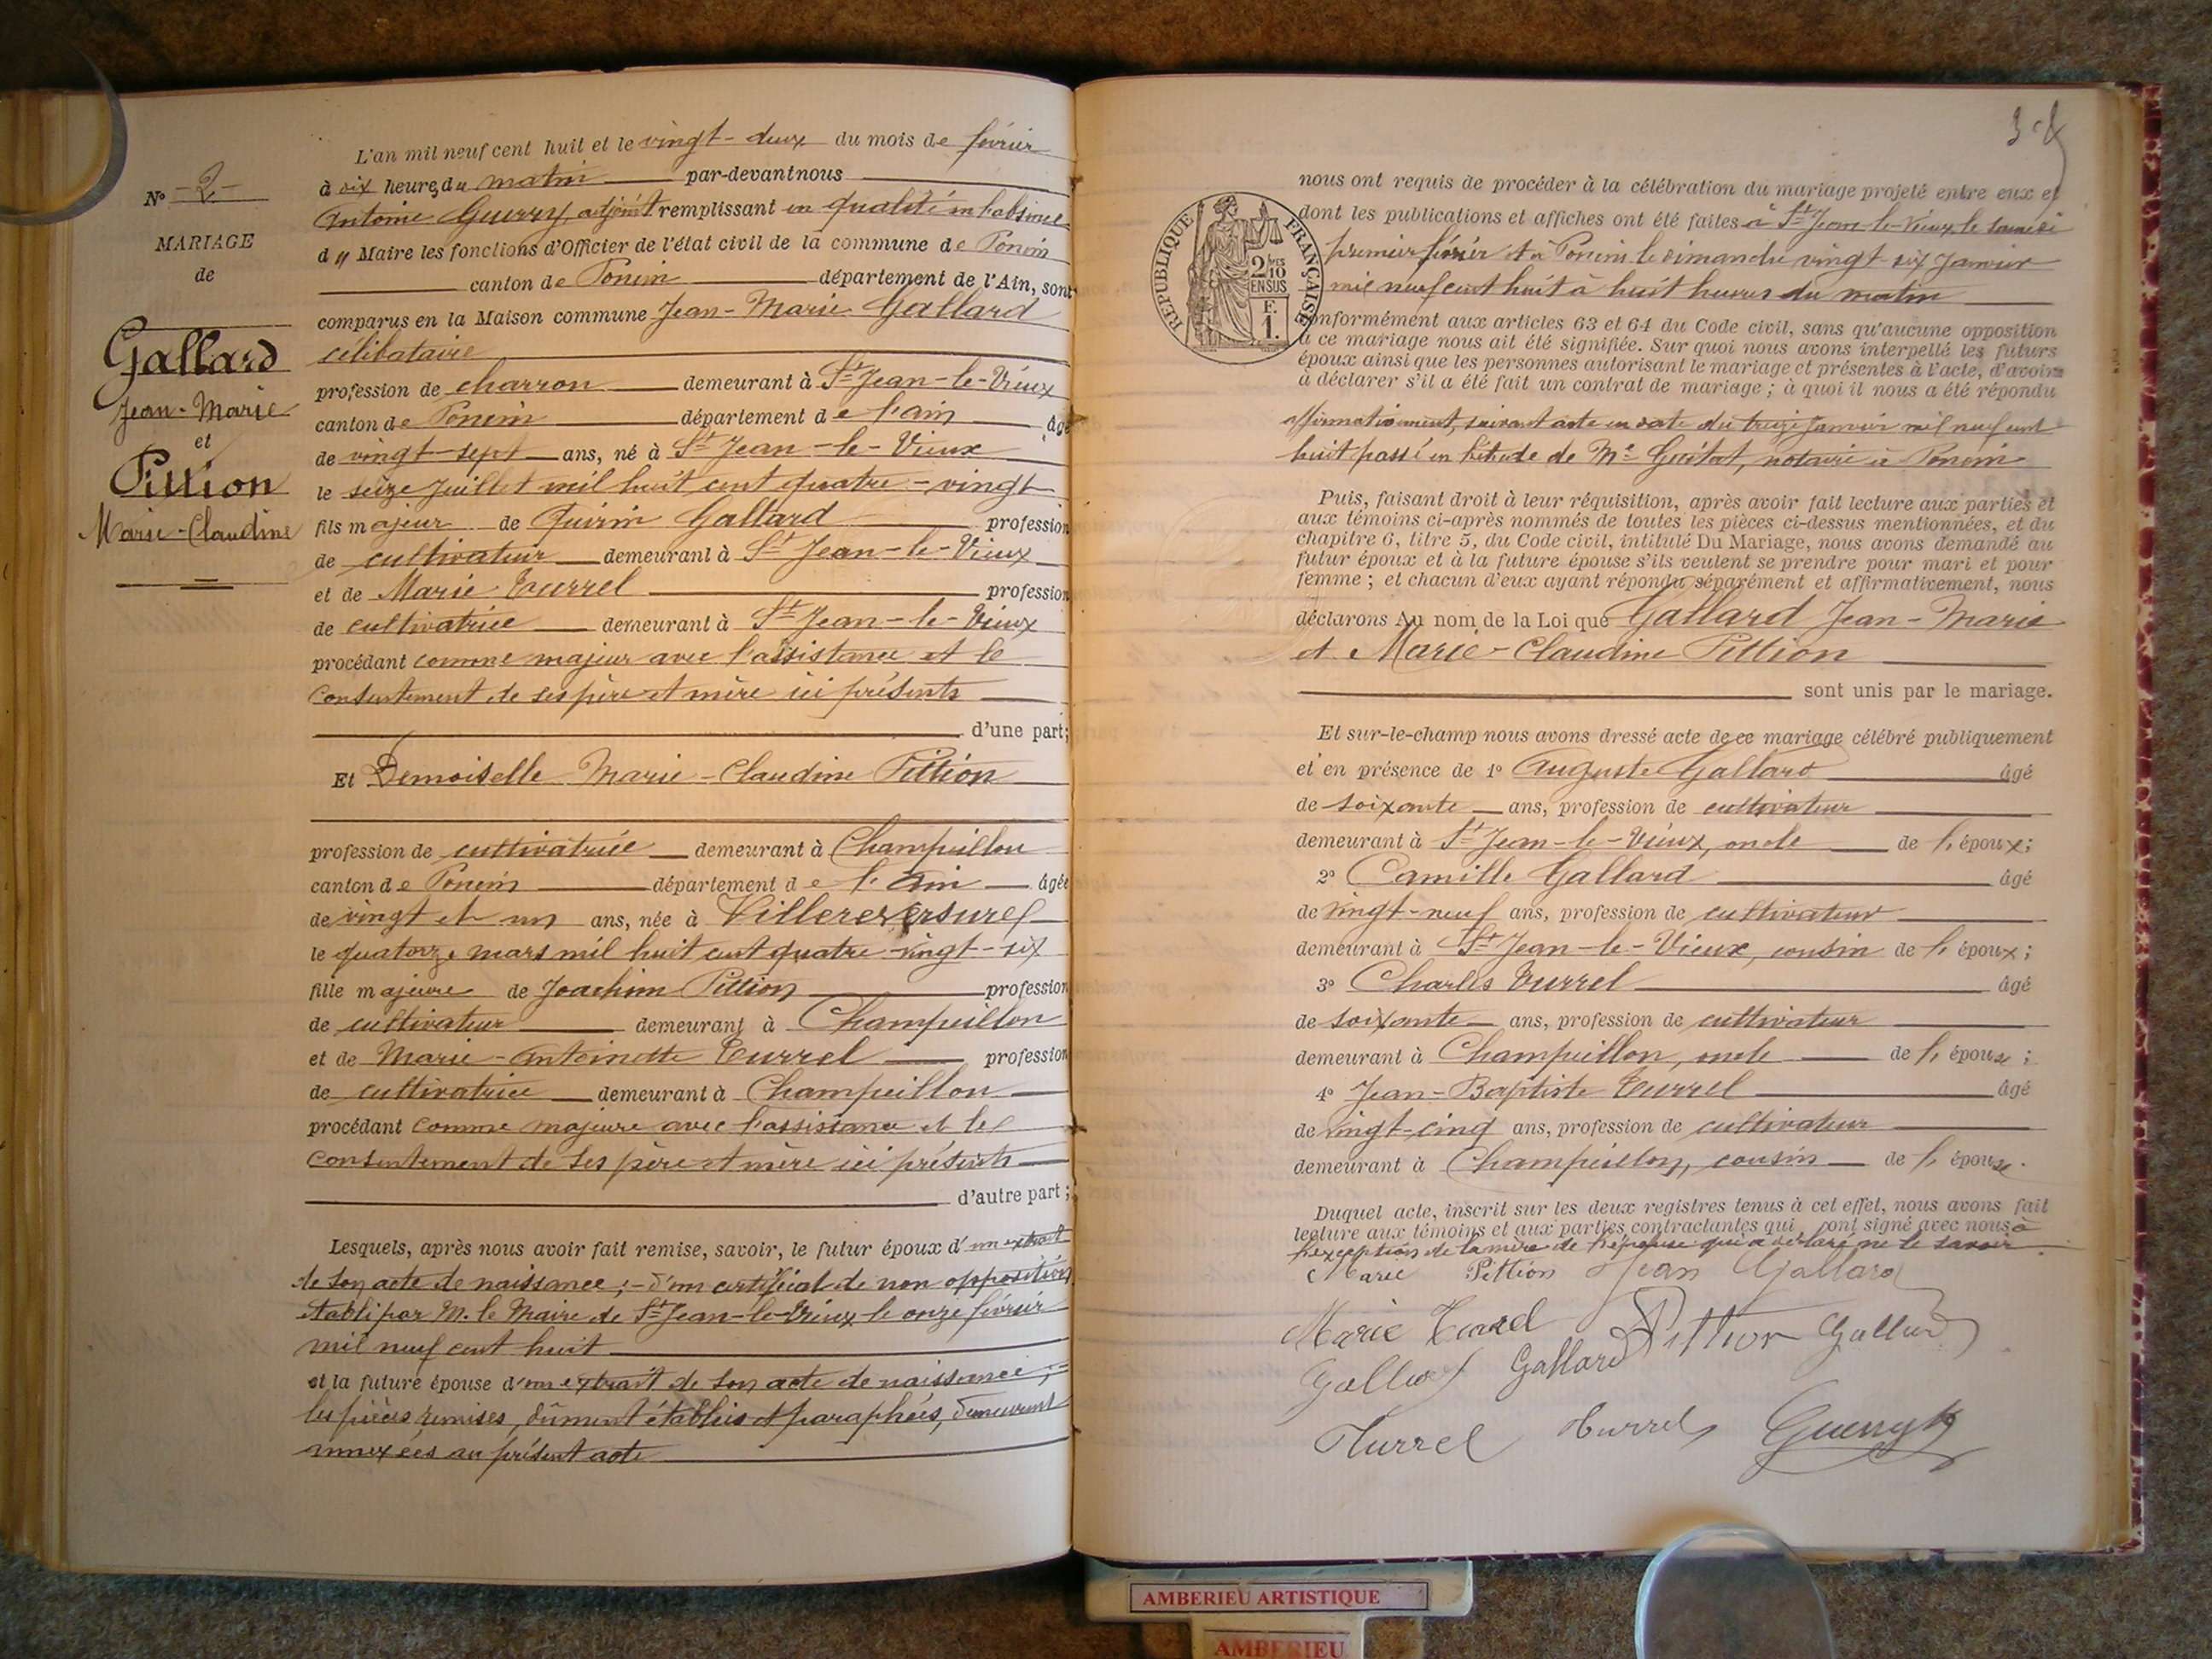 L'an mil neuf cent huit et le vingt-deux du mois de février
à dix heures du matin par-devant nous
Antoine Guerry adjoint remplissant en qualité en l'absence
du Maire les fonctions d'Officier de l'état civil de la commune de Poncin
canton de Poncin département de l'Ain, sont
comparus en la Maison commune Jean-Marie Gallard
célibataire
profession de charron demeurant à St Jean-le-Vieux
canton de Poncin département de l'Ain âgé
de vingt-sept ans, né à St Jean-le-Vieux
le seize Juillet mil huit cent quatre-vingt
fils majeur de Quirin Gallard profession
de cultivateur demeurant à St Jean-le-Vieux
et de Marie Turrel profession
de cultivatrice demeurant à St Jean-le-Vieux
procédant comme majeur avec l'assistance et le
consentement de ses père et mère ici présents
d'une part;
Et Demoiselle Marie-Claudine Pittion
profession de cultivatrice demeurant à Champeillon
canton de Poncin département de l'Ain âgée
de vingt et un ans, née à Villereversure
le quatorze mars mil huit cent quatre-vingt-six
fille majeure de Joachim Pittion profession
de cultivateur demeurant à Champeillon
et de Marie-Antoinette Turrel profession
de cultivatrice demeurant à Champeillon
procédant comme majeure avec l'assistance et le
consentement de ses père et mère ici présents
d'autre part;
Lesquels, après nous avoir fait remise, savoir, le futur époux d'un extrait
de son acte de naissance; - d'un certificat de non opposition
établi par M. le Maire de St Jean-le-Vieux le onze février
mil neuf cent huit
et la future épouse d'un extrait de son acte de naissance;
les pièces remises, dûment établies et paraphées, demeurent
annexées au présent acte
No 2
MARIAGE
de
Gallard
Jean-Marie
et
Pittion
Marie-Claudine
nous ont requis de procéder à la célébration du mariage projeté entre eux et
dont les publications et affiches ont été faites à St Jean-le-Vieux le samedi
premier février et à Poncin le dimanche vingt six Janvier
mil neuf cent huit à huit heures du matin
conformément aux articles 63 et 64 du Code civil, sans qu'aucune opposition
à ce mariage nous ait été signifiée. Sur quoi nous avons interpellé les futurs
époux ainsi que les personnes autorisant le mariage et présentes à l'acte, d'avoir
à déclarer s'il a été fait un contrat de mariage; à quoi il nous a été répondu
affirmativement, suivant acte en date du treize Janvier mil neuf cent
huit passé en l'étude de Me notaire à Poncin
Puis, faisant droit à leur réquisition, après avoir fait lecture aux parties et
aux témoins ci-après nommés de toutes les pièces ci-dessus mentionnées, et du
chapitre 6, titre 5, du Code civil, intitulé Du Mariage, nous avons demandé au
futur époux et à la future épouse s'ils veulent se prendre pour mari et pour
femme; et chacun d'eux ayant répondu séparément et affirmativement, nous
déclarons Au nom de la Loi que Gallard Jean-Marie
et Marie-Claudine Pittion
sont unis par le mariage.
Et sur-le-champ nous avons dressé acte de ce mariage célébré publiquement
et en présence de 1° Auguste Gallard âgé
de soixante ans, profession de cultivateur
demeurant à St Jean-le-Vieux, oncle de l'époux;
2° Camille Gallard âgé
de vingt-neuf ans, profession de cultivateur
demeurant à St Jean-le-Vieux, cousin de l'époux;
3° Charles Turrel âgé
de soixante ans, profession de cultivateur
demeurant à Champeillon, oncle de l'épouse;
4° Jean-Baptiste Turrel âgé
de vingt-cinq ans, profession de cultivateur
demeurant à Champeillon, cousin de l'épouse.
Duquel acte, inscrit sur les deux registres tenus à cet effet, nous avons fait
lecture aux témoins et aux parties contractantes qui ont signé avec nous à
l'exception de la mère de l'épouse qui a déclaré ne le savoir.
Marie Pittion Jean Gallard
Marie Turrel Pittion Gallard
Gallard Gallard
Turrel Turrel Guerry
REPUBLIQUE FRANÇAISE
2 10MES
EN SUS
F.
1.
AMBERIEU ARTISTIQUE
AMBERIEU